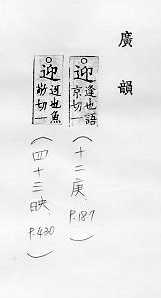 廣韻
迎 逢也語
京切一
(十二庚 P.187)
迎 迓也魚
敬切一
(四十三映 P.430)